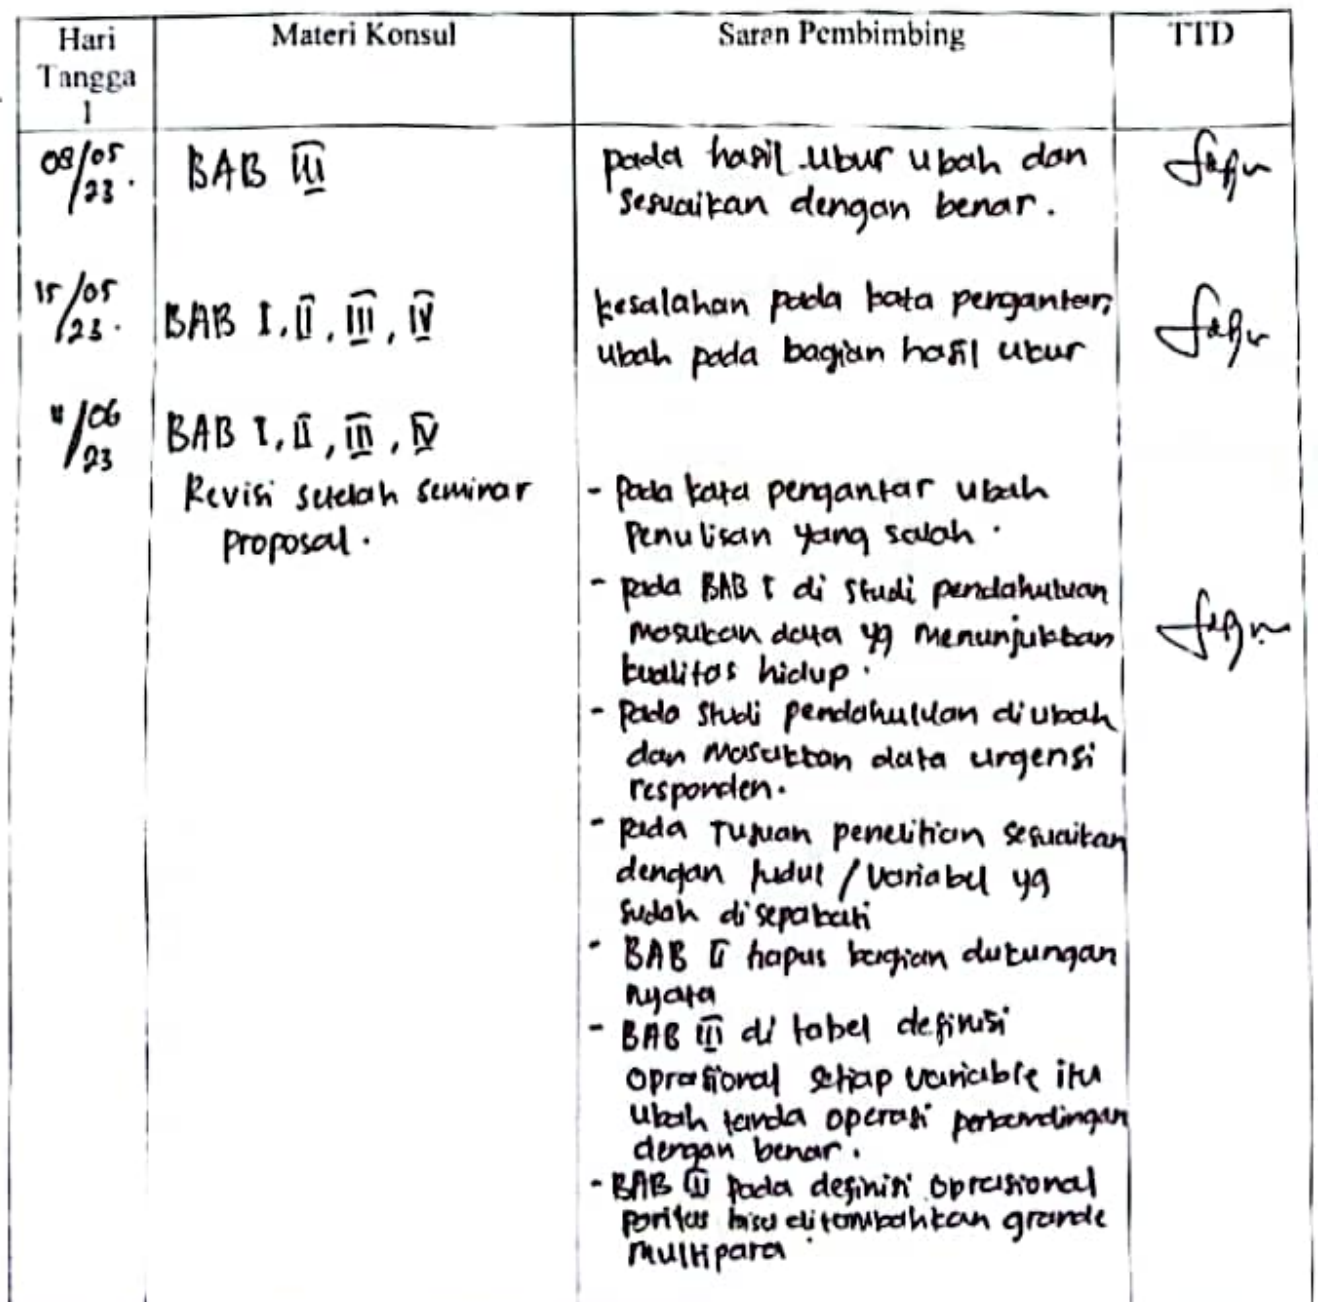 Hari Materi Konsul Saran Pembimbing TTD
Tangga
l
08/05 BAB III pada hasil ukur ubah dan
23. sesuaikan dengan benar.
15/05 BAB I, II, III, IV kesalahan pada kata pengantar,
23. ubah pada bagian hasil ukur
11/06 BAB I, II, III, IV
23
Revisi setelah seminar - pada kata pengantar ubah
proposal. penulisan yang salah.
- pada BAB I di studi pendahuluan
masukan data yg menunjukkan
kualitas hidup.
- pada studi pendahuluan di ubah
dan masukkan data urgensi
responden.
- pada Tujuan penelitian sesuaikan
dengan judul / variabel yg
sudah disepakati
- BAB II hapus bagian dukungan
nyata
- BAB III di tabel definisi
oprasional setiap variable itu
ubah tanda operasi perbandingan
dengan benar.
- BAB III pada definisi oprasional
paritas bisa ditambahkan grande
multipara